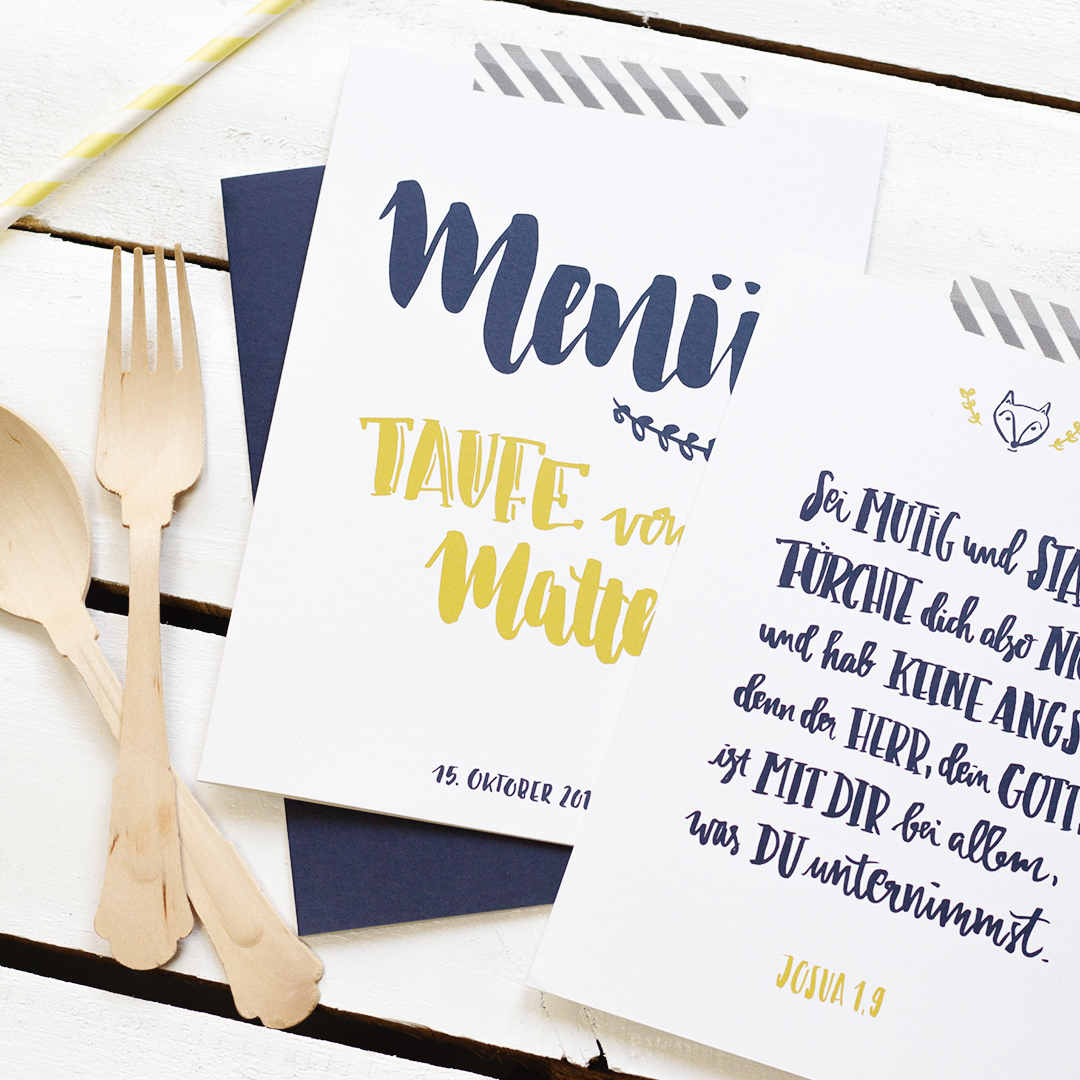 Menü
TAUFE von
Matt
15. OKTOBER 201
Sei MUTIG und STA
FÜRCHTE dich also NIC
und hab KEINE ANGS
denn der HERR, dein GOTT
ist MIT DIR bei allem,
was DU unternimmst.
JOSUA 1,9